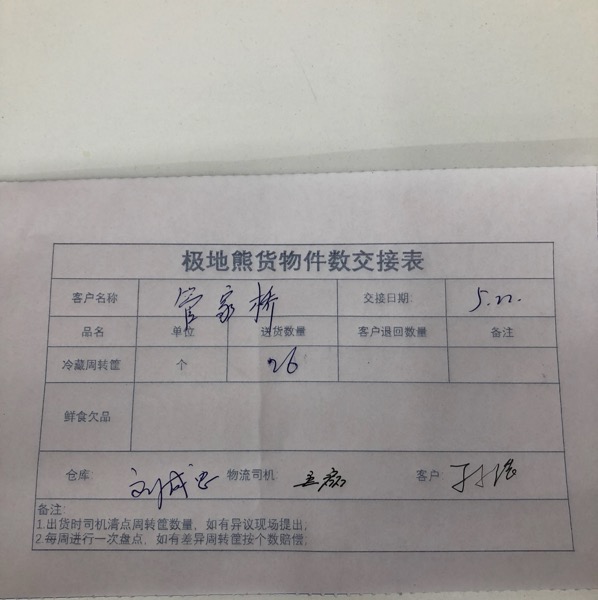 极地熊货物件数交接表
客户名称 管家桥 交接日期: 5.22.
品名 单位 送货数量 客户退回数量 备注
冷藏周转筐 个 26
鲜食欠品
仓库: 刘成忠 物流司机: 王磊 客户
备注:
1.出货时司机清点周转筐数量，如有异议现场提出;
2.每周进行一次盘点，如有差异周转筐按个数赔偿;